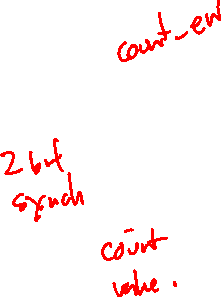 count_en
2 bit
synch
count
value.